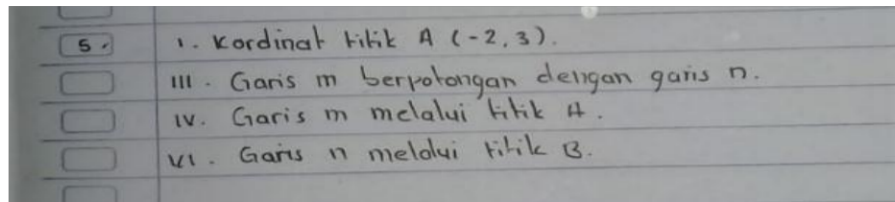 5. I. Kordinat titik A (-2,3).
III. Garis m berpotongan dengan garis n.
IV. Garis m melalui titik A.
VI. Garis n melalui titik B.